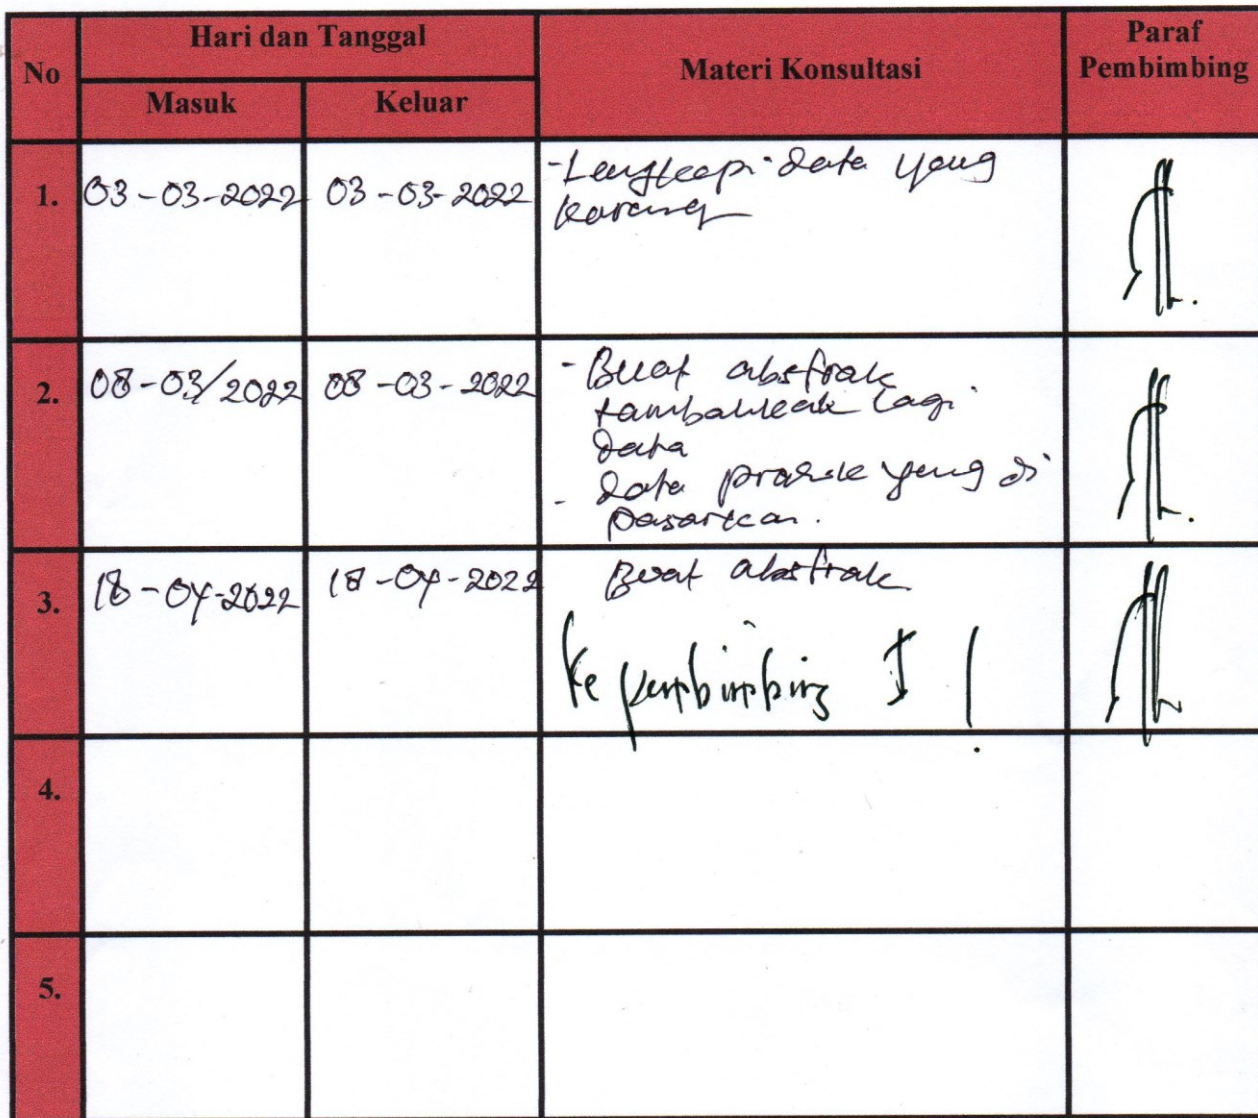 No
Hari dan Tanggal
Materi Konsultasi
Paraf
Pembimbing
Masuk
Keluar
1.
03-03-2022
03-03-2022
-Lengkapi data yang
kurang
2.
08-03/2022
08-03-2022
- Buat abstrak
tambahkan lagi
data
- data produk yang di
pasarkan.
3.
18-04-2022
18-04-2022
Buat abstrak
ke pembimbing I !
4.
5.